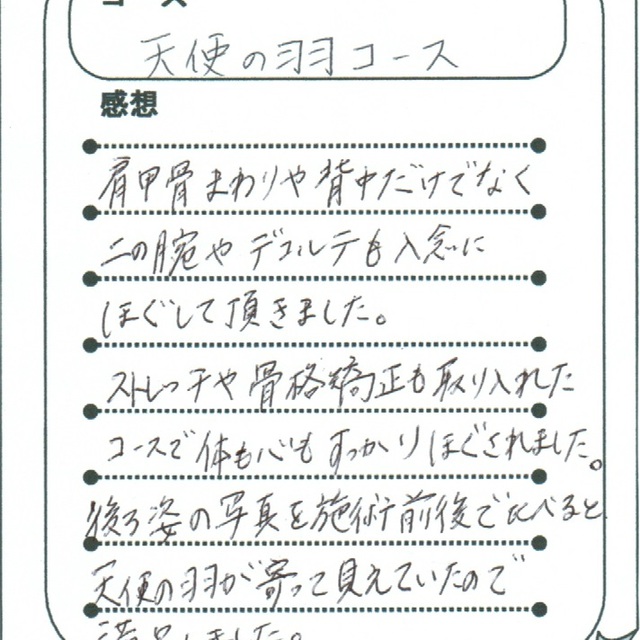 コース
天使の羽コース
感想
肩甲骨まわりや背中だけでなく
二の腕やデコルテも入念に
ほぐして頂きました。
ストレッチや骨格矯正も取り入れた
コースで体も心もすっかりほぐされました。
後ろ姿の写真を施術前後で比べると
天使の羽が寄って見えていたので
満足しました。